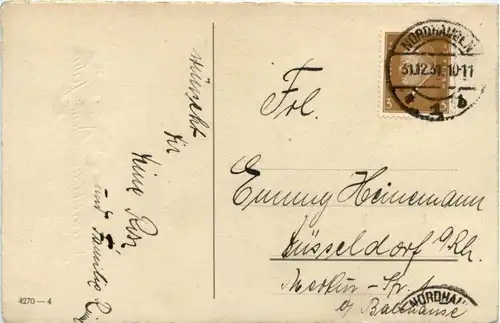 wünscht
Dir
Deine Resi
und Familie
4270—4
NORDHAUSEN
31.12.31.10-11
5
Frl.
Emmy Heinemann
Düsseldorf a/Rh.
Merkur-Str.
b/ Ballhause
NORDHAU